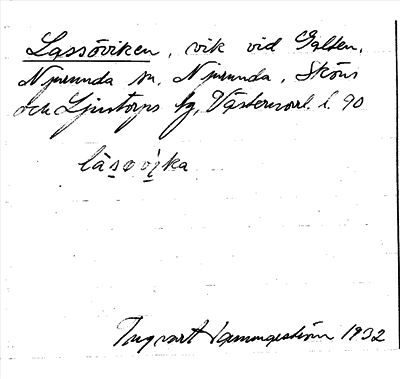 Lassöviken, vik vid Galten,
Njurunda sn, Njurunda, Sköns
och Ljustorps tg, Västernorrl. l. 90
låsøvika
Ingvart 1932